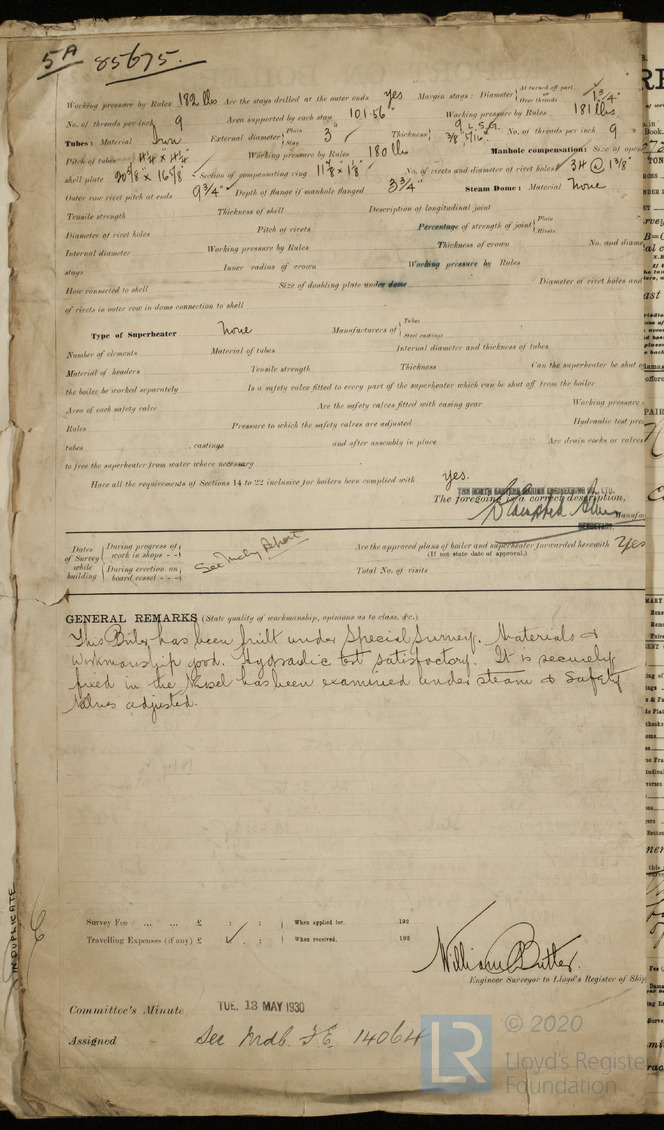 5A 85675.
Working pressure by Rules 182 lbs Are the stays drilled at the outer ends yes Margin stays: Diameter { At turned off part, or Over threads 1 3/4"
No. of threads per inch 9 Area supported by each stay 101.56" Working pressure by Rules 181 lbs
Tubes: Material Iron External diameter { Plain Stay 3" Thickness { 9 L.S.G. 3/8" 5/16" No. of threads per inch 9
Pitch of tubes 4 1/4 x 4 1/4 Working pressure by Rules 180 lbs Manhole compensation: Size of open
shell plate 20 3/8 x 16 5/8 Section of compensating ring 11 7/8 x 1 1/8 No. of rivets and diameter of rivet holes 34 @ 1 3/8"
Outer row rivet pitch at ends 9 3/4" Depth of flange if manhole flanged 3 3/4" Steam Dome: Material None
Tensile strength Thickness of shell Description of longitudinal joint
Diameter of rivet holes Pitch of rivets Percentage of strength of joint { Plate Rivets
Internal diameter Working pressure by Rules Thickness of crown No. and diame
stays Inner radius of crown Working pressure by Rules
How connected to shell Size of doubling plate under dome Diameter of rivet holes and
of rivets in outer row in dome connection to shell
Type of Superheater None Manufacturers of { Tubes Steel castings
Number of elements Material of tubes Internal diameter and thickness of tubes
Material of headers Tensile strength Thickness Can the superheater be shut o
the boiler be worked separately Is a safety valve fitted to every part of the superheater which can be shut off from the boiler
Area of each safety valve Are the safety valves fitted with easing gear Working pressure
Rules Pressure to which the safety valves are adjusted Hydraulic test pres
tubes, castings and after assembly in place Are drain cocks or valves
to free the superheater from water where necessary
Have all the requirements of Sections 14 to 22 inclusive for boilers been complied with yes.
THE NORTH EASTERN MARINE ENGINEERING CO., LTD.
The foregoing is a correct description,
Manufac
SECRETARY.
Dates of Survey while building { During progress of work in shops - - During erection on board vessel - - - See Mchy Report Are the approved plans of boiler and superheater forwarded herewith Yes
(If not state date of approval.)
Total No. of visits
GENERAL REMARKS (State quality of workmanship, opinions as to class, &c.)
This Boiler has been built under Special Survey. Materials &
workmanship good. Hydraulic test satisfactory. It is securely
fixed in the Vessel has been examined under steam & Safety
Valves adjusted.
IN DUPLICATE
Survey Fee ... ... £ : : When applied for, 192
Travelling Expenses (if any) £ : : When received, 192
William Butler.
Engineer Surveyor to Lloyd's Register of Ship
Committee's Minute TUE. 13 MAY 1930
Assigned See Mdb. F.E. 14064
LR © 2020
Lloyd's Register
Foundation